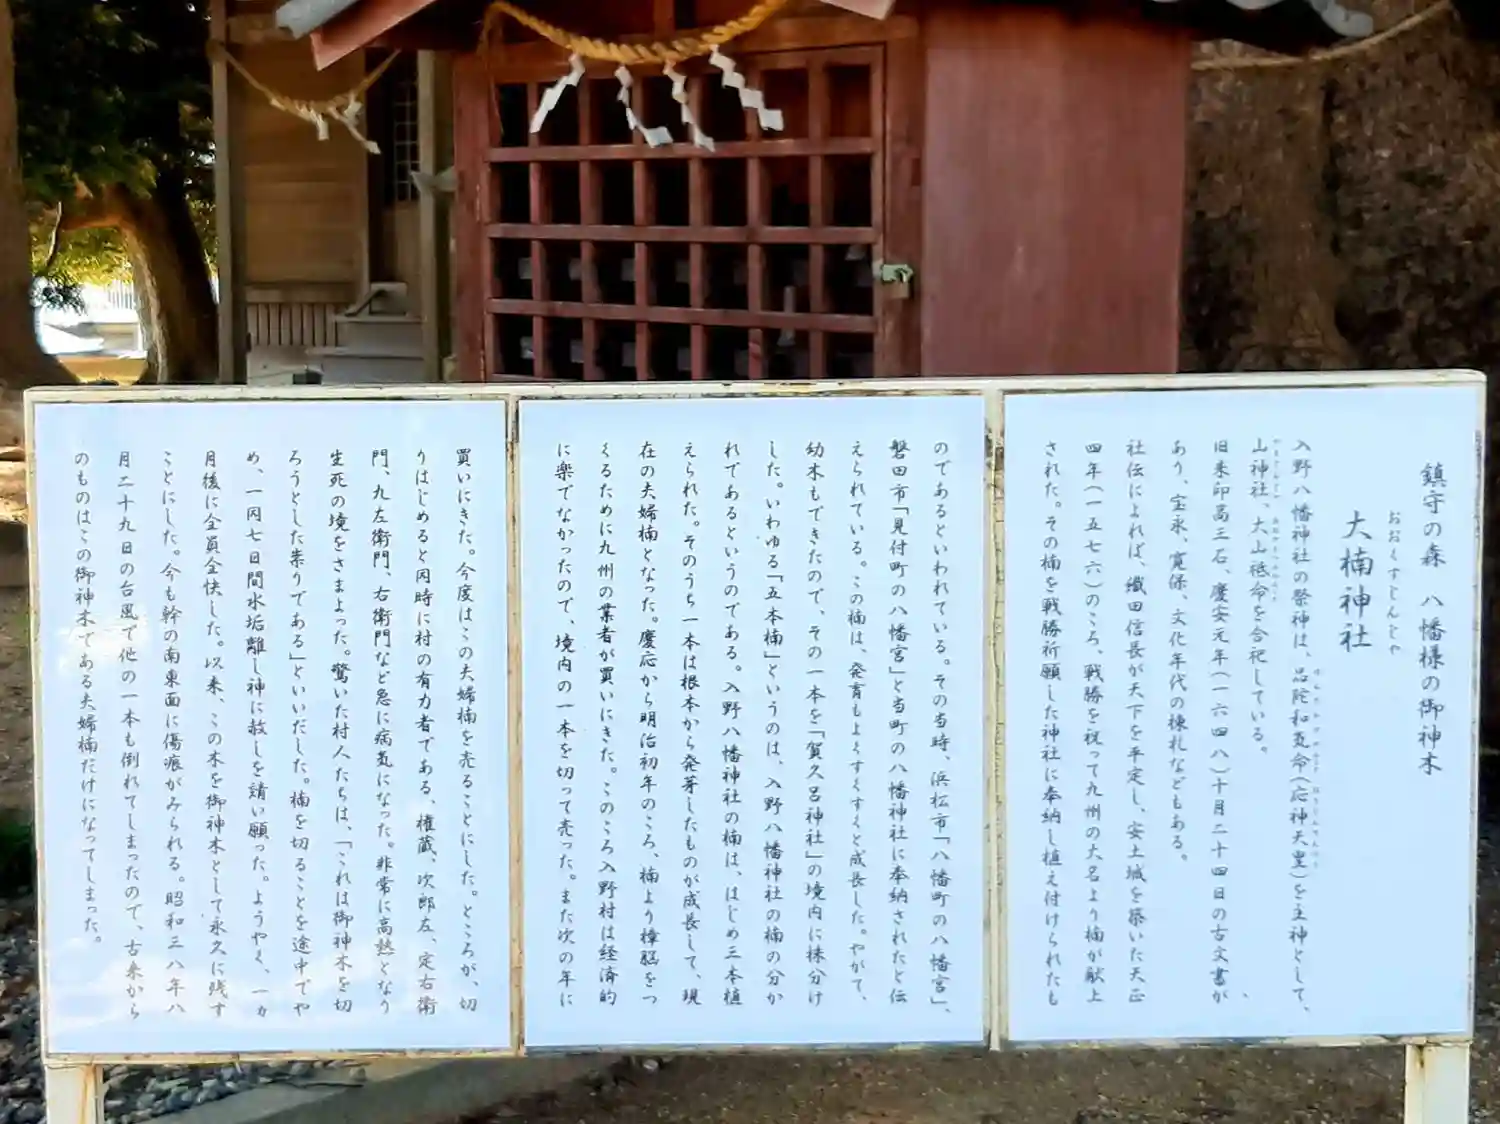 鎮守の森　八幡様の御神木
おおくすじんじゃ
大楠神社
入野八幡神社の祭神は、品陀和気命(応神天皇)を主神として、
山神社、大山祗命を合祀している。
旧朱印高三石、慶安元年(一六四八)十月二十四日の古文書が、
あり、宝永、寛保、文化年代の棟札などもある。
社伝によれば、織田信長が天下を平定し、安土城を築いた天正
四年(一五七六)のころ、戦勝を祝って九州の大名より楠が献上
された。その楠を戦勝祈願した神社に奉納し植え付けられたも
のであるといわれている。その当時、浜松市「八幡町の八幡宮」、
磐田市「見付町の八幡宮」と当町の八幡神社に奉納されたと伝
えられている。この楠は、発育もよくすくすくと成長した。やがて、
幼木もできたので、その一本を「賀久呂神社」の境内に株分け
した。いわゆる「五本楠」というのは、入野八幡神社の楠の分か
れであるというのである。入野八幡神社の楠は、はじめ三本植
えられた。そのうち一本は根本から発芽したものが成長して、現
在の夫婦楠となった。慶応から明治初年のころ、楠より樟脳をつ
くるために九州の業者が買いにきた。このころ入野村は経済的
に楽でなかったので、境内の一本を切って売った。また次の年に
買いにきた。今度はこの夫婦楠を売ることにした。ところが、切
りはじめると同時に村の有力者である、権蔵、次郎左、定右衛
門、九左衛門、右衛門など急に病気になった。非常に高熱となり
生死の境をさまよった。驚いた村人たちは、「これは御神木を切
ろうとした祟りである」といいだした。楠を切ることを途中でや
め、一同七日間水垢離し神に赦しを請い願った。ようやく、一ヵ
月後に全員全快した。以来、この木を御神木として永久に残す
ことにした。今も幹の南東面に傷痕がみられる。昭和三八年八
月二十九日の台風で他の一本も倒れてしまったので、古来から
のものはこの御神木である夫婦楠だけになってしまった。